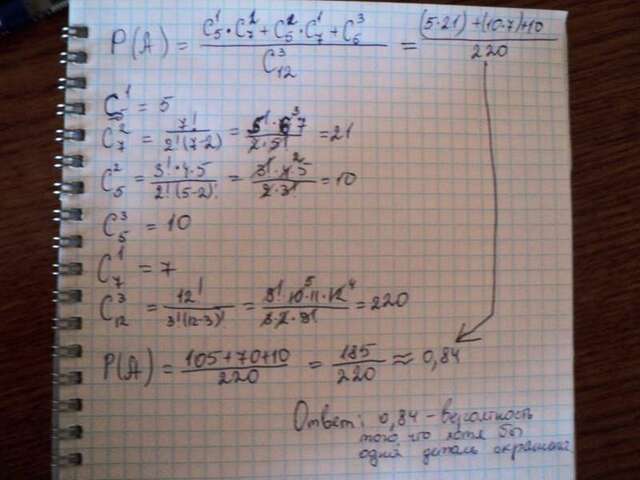 P(A) = (C₅¹·C₇² + C₅²·C₇¹ + C₅³) / C₁₂³ = ((5·21)+(10·7)+10) / 220
C₅¹ = 5
C₇² = 7! / 2!(7-2) = 5!·6³7 / 2·5! = 21
C₅² = 3!·4·5 / 2!(5-2)! = 3!·4²·5 / 2·3! = 10
C₅³ = 10
C₇¹ = 7
C₁₂³ = 12! / 3!(12-3)! = 9!·10⁵·11·12⁴ / 3·2·9! = 220
P(A) = 105+70+10 / 220 = 185 / 220 ≈ 0,84
Ответ: 0,84 – вероятность
того, что хотя бы
одна деталь окрашена